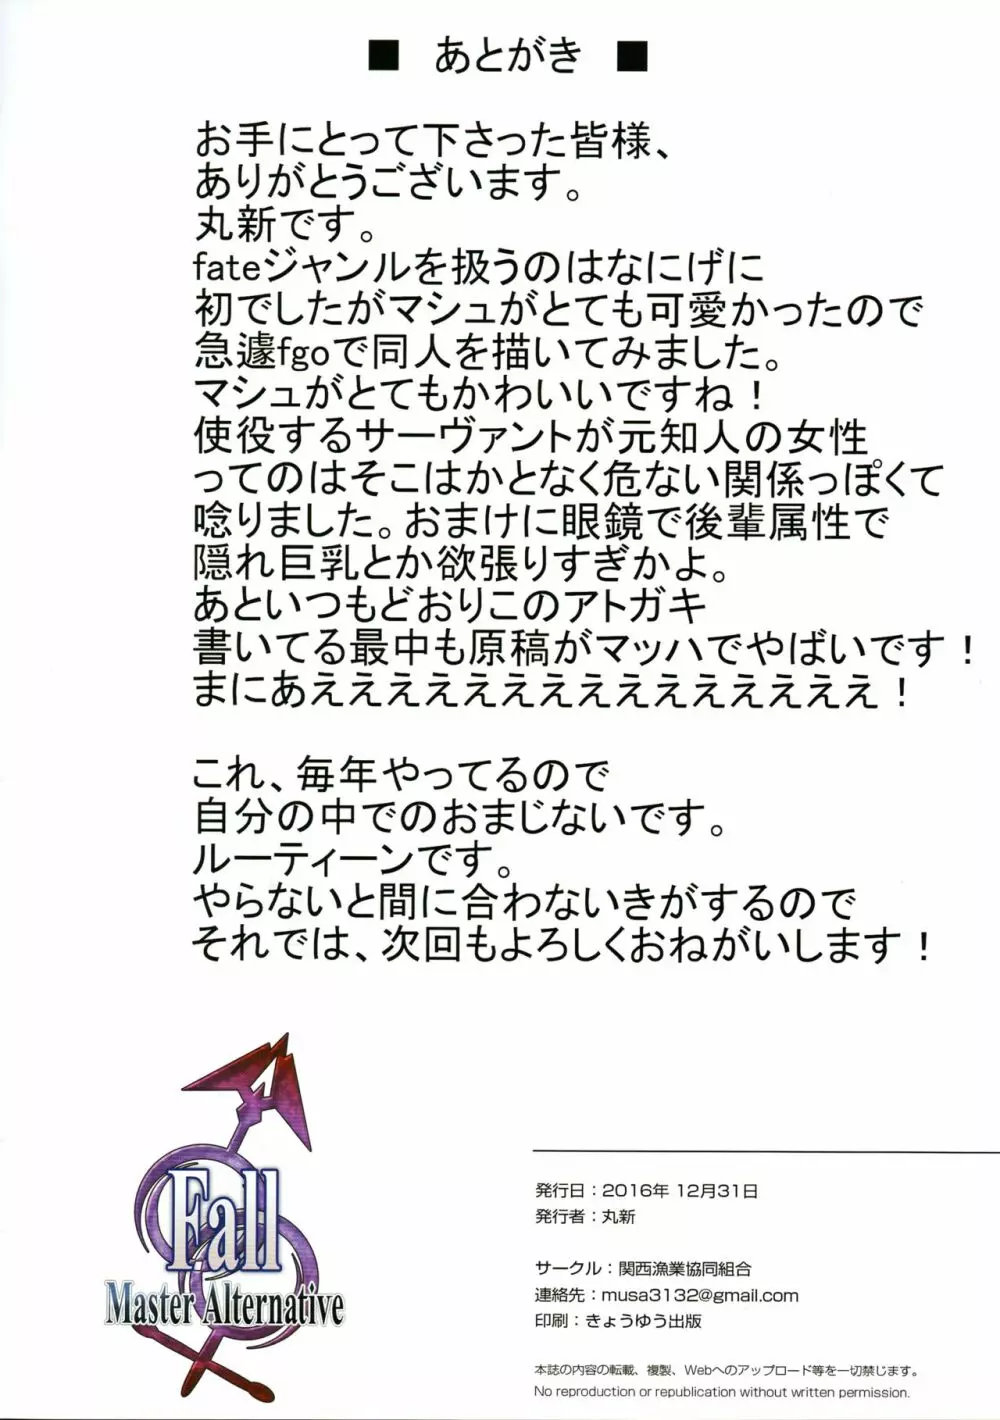 ■ あとがき ■
お手にとって下さった皆様、
ありがとうございます。
丸新です。
fateジャンルを扱うのはなにげに
初でしたがマシュがとても可愛かったので
急遽fgoで同人を描いてみました。
マシュがとてもかわいいですね！
使役するサーヴァントが元知人の女性
ってのはそこはかとなく危ない関係っぽくて
唸りました。おまけに眼鏡で後輩属性で
隠れ巨乳とか欲張りすぎかよ。
あといつもどおりこのアトガキ
書いてる最中も原稿がマッハでやばいです！
まにあえええええええええええええええ！
これ、毎年やってるので
自分の中でのおまじないです。
ルーティーンです。
やらないと間に合わないきがするので
それでは、次回もよろしくおねがいします！
Fall
Master Alternative
発行日：2016年 12月31日
発行者：丸新
サークル：関西漁業協同組合
連絡先：musa3132@gmail.com
印刷：きょうゆう出版
本誌の内容の転載、複製、Webへのアップロード等を一切禁じます。
No reproduction or republication without written permission.